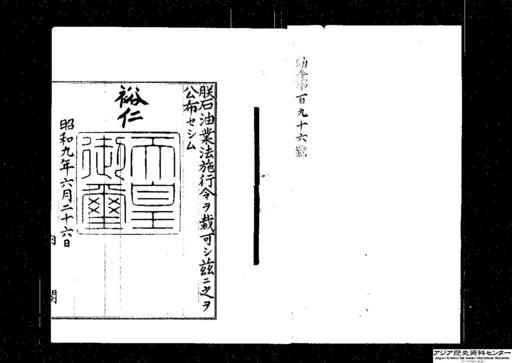 勅令第百九十六號
朕石油業法施行令ヲ裁可シ茲ニ之ヲ
公布セシム
裕仁
天皇
御璽
昭和九年六月二十六日
内閣
アジア歴史資料センター
Japan Center for Asian Historical Records